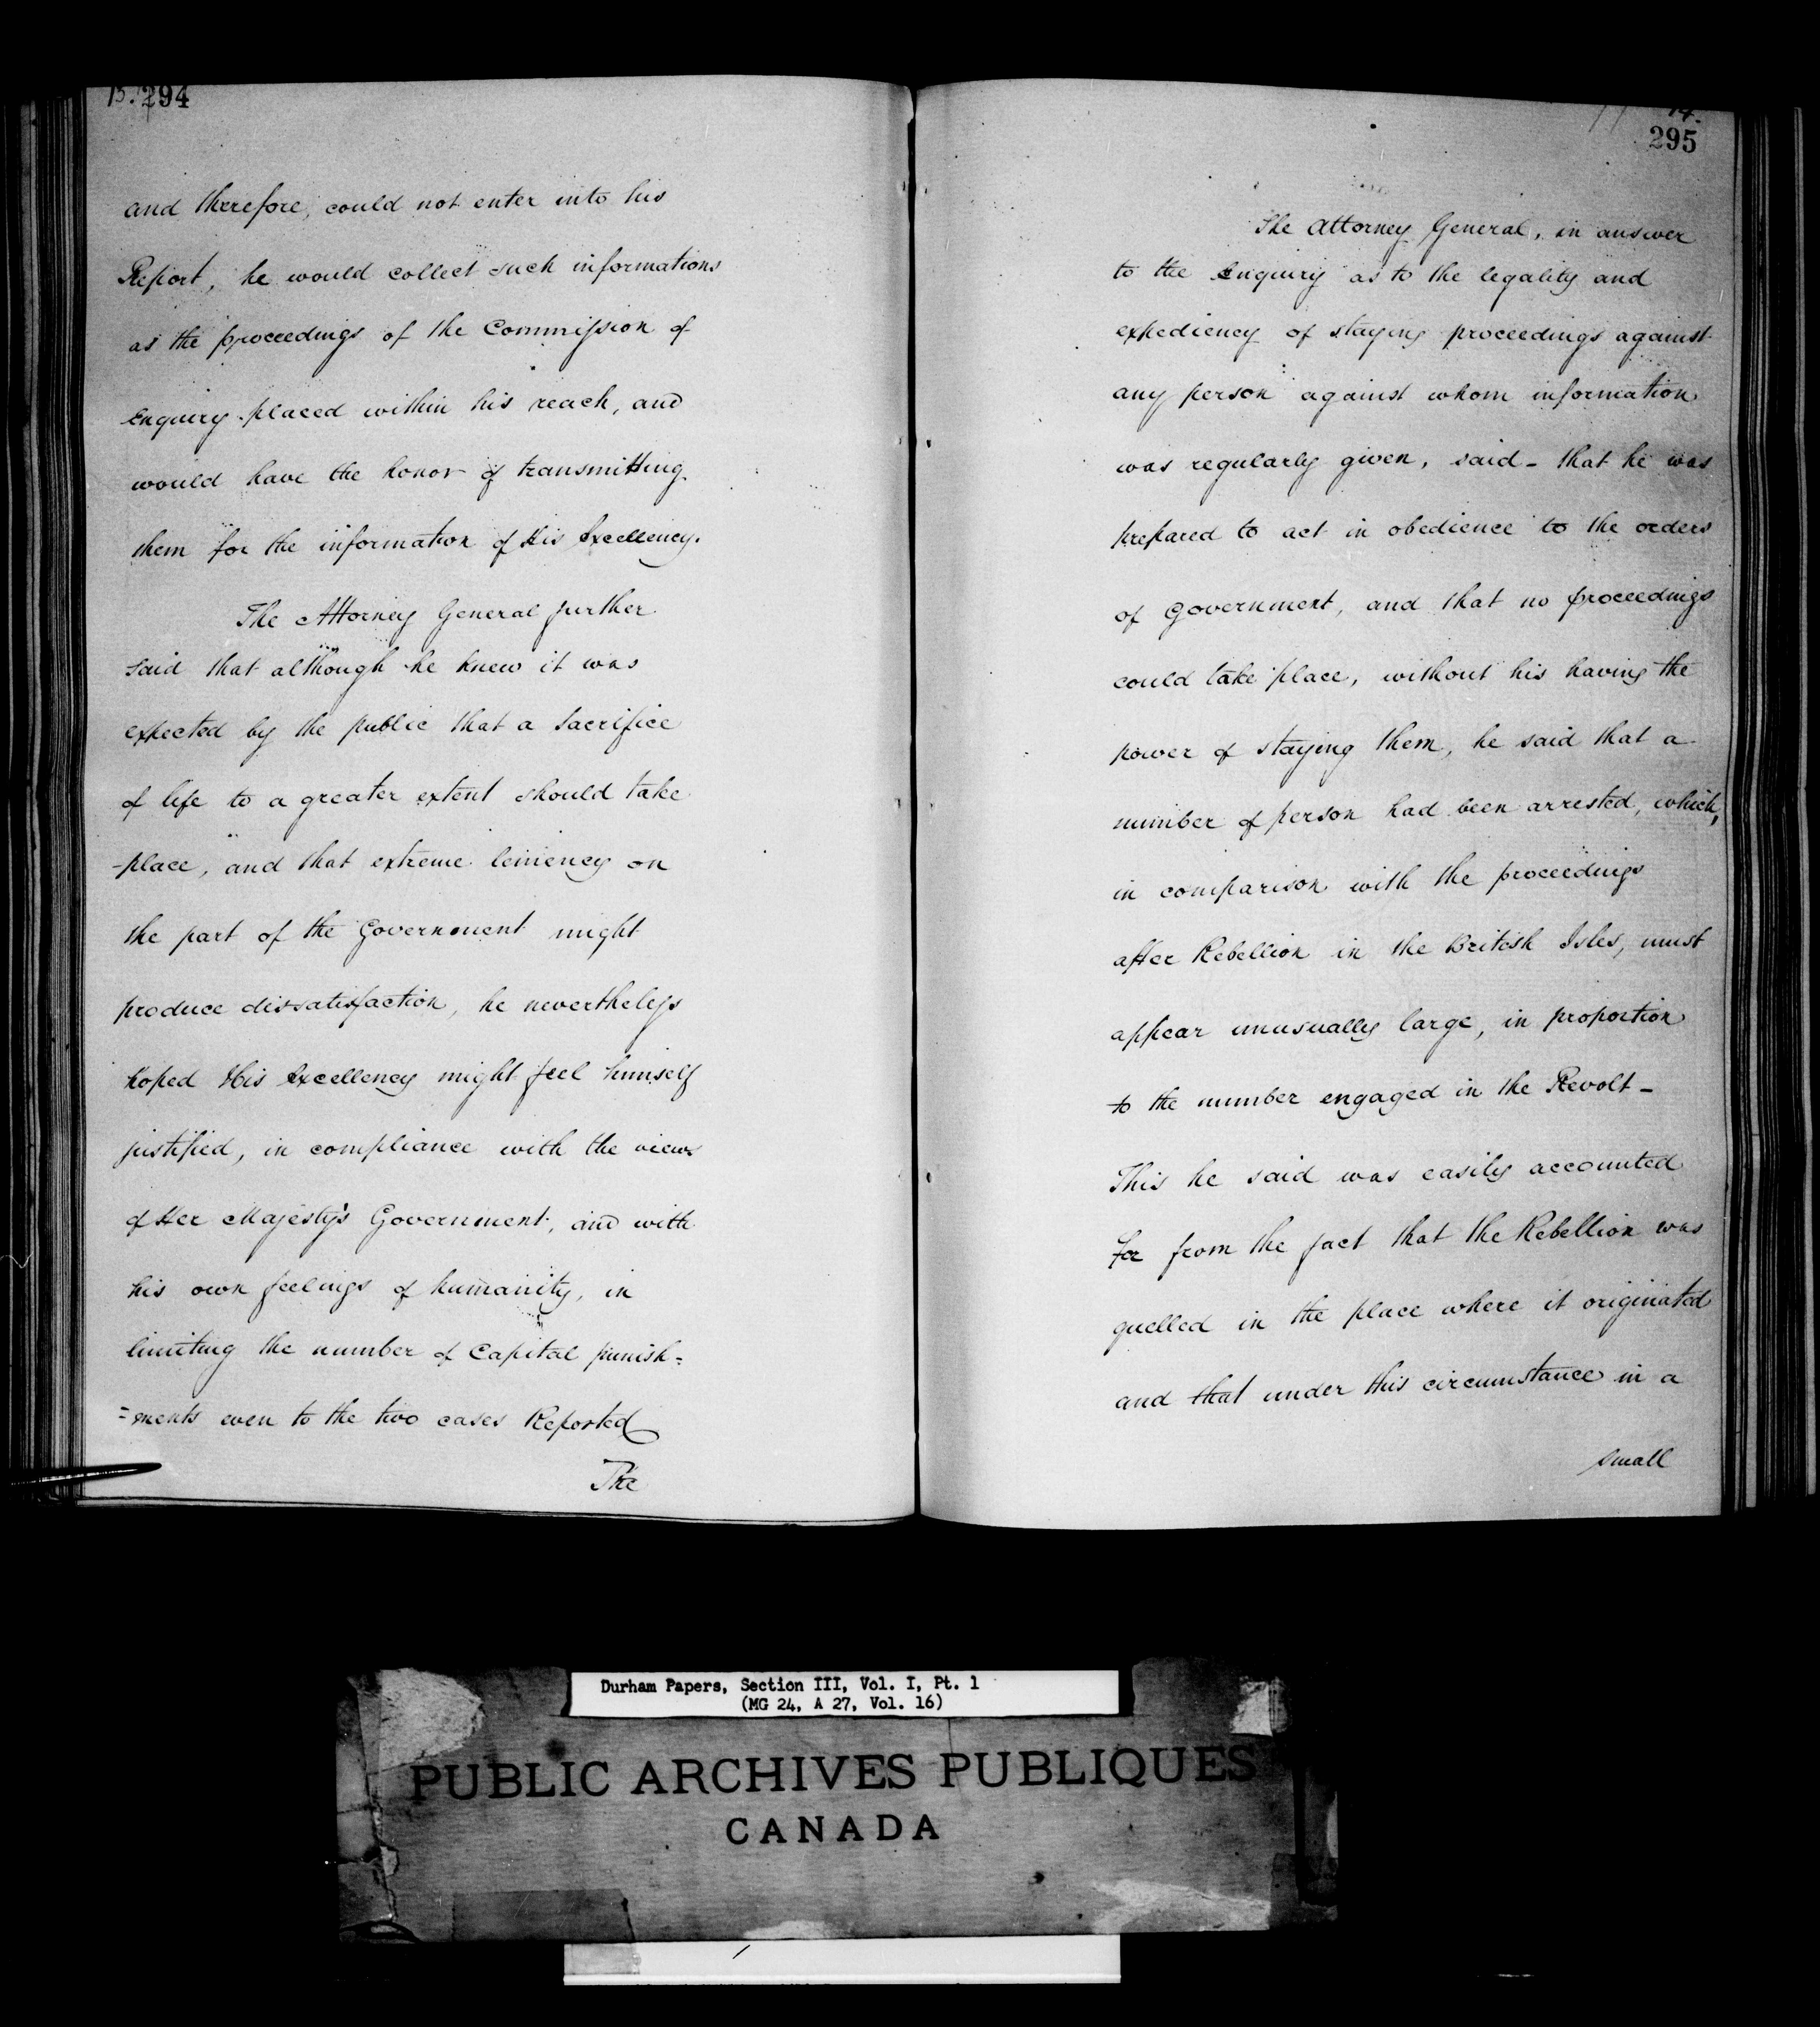 13. 294
and therefore, could not enter into his
Report, he would collect such informations
as the proceedings of the Commission of
Enquiry placed within his reach, and
would have the honor of transmitting
them for the information of His Excellency.
The Attorney General further
said that although he knew it was
expected by the public that a sacrifice
of life to a greater extent should take
-place, and that extreme leniency on
the part of the Government might
produce dissatisfaction, he nevertheless
hoped His Excellency might feel himself
justified, in compliance with the views
of Her Majesty's Government, and with
his own feelings of humanity, in
limiting the number of Capital punish=
=ments even to the two cases Reported
The
14.
295
The Attorney General, in answer
to the Enquiry as to the legality and
expediency of staying proceedings against
any person against whom information
was regularly given, said - that he was
prepared to act in obedience to the orders
of Government, and that no proceedings
could take place, without his having the
power of staying them, he said that a
number of person had been arrested, which,
in comparison with the proceedings
after Rebellion in the British Isles, must
appear unusually large, in proportion
to the number engaged in the Revolt -
This he said was easily accounted
for from the fact that the Rebellion was
quelled in the place where it originated
and that under this circumstance in a
small
Durham Papers, Section III, Vol. I, Pt. 1
(MG 24, A 27, Vol. 16)
PUBLIC ARCHIVES PUBLIQUES
CANADA